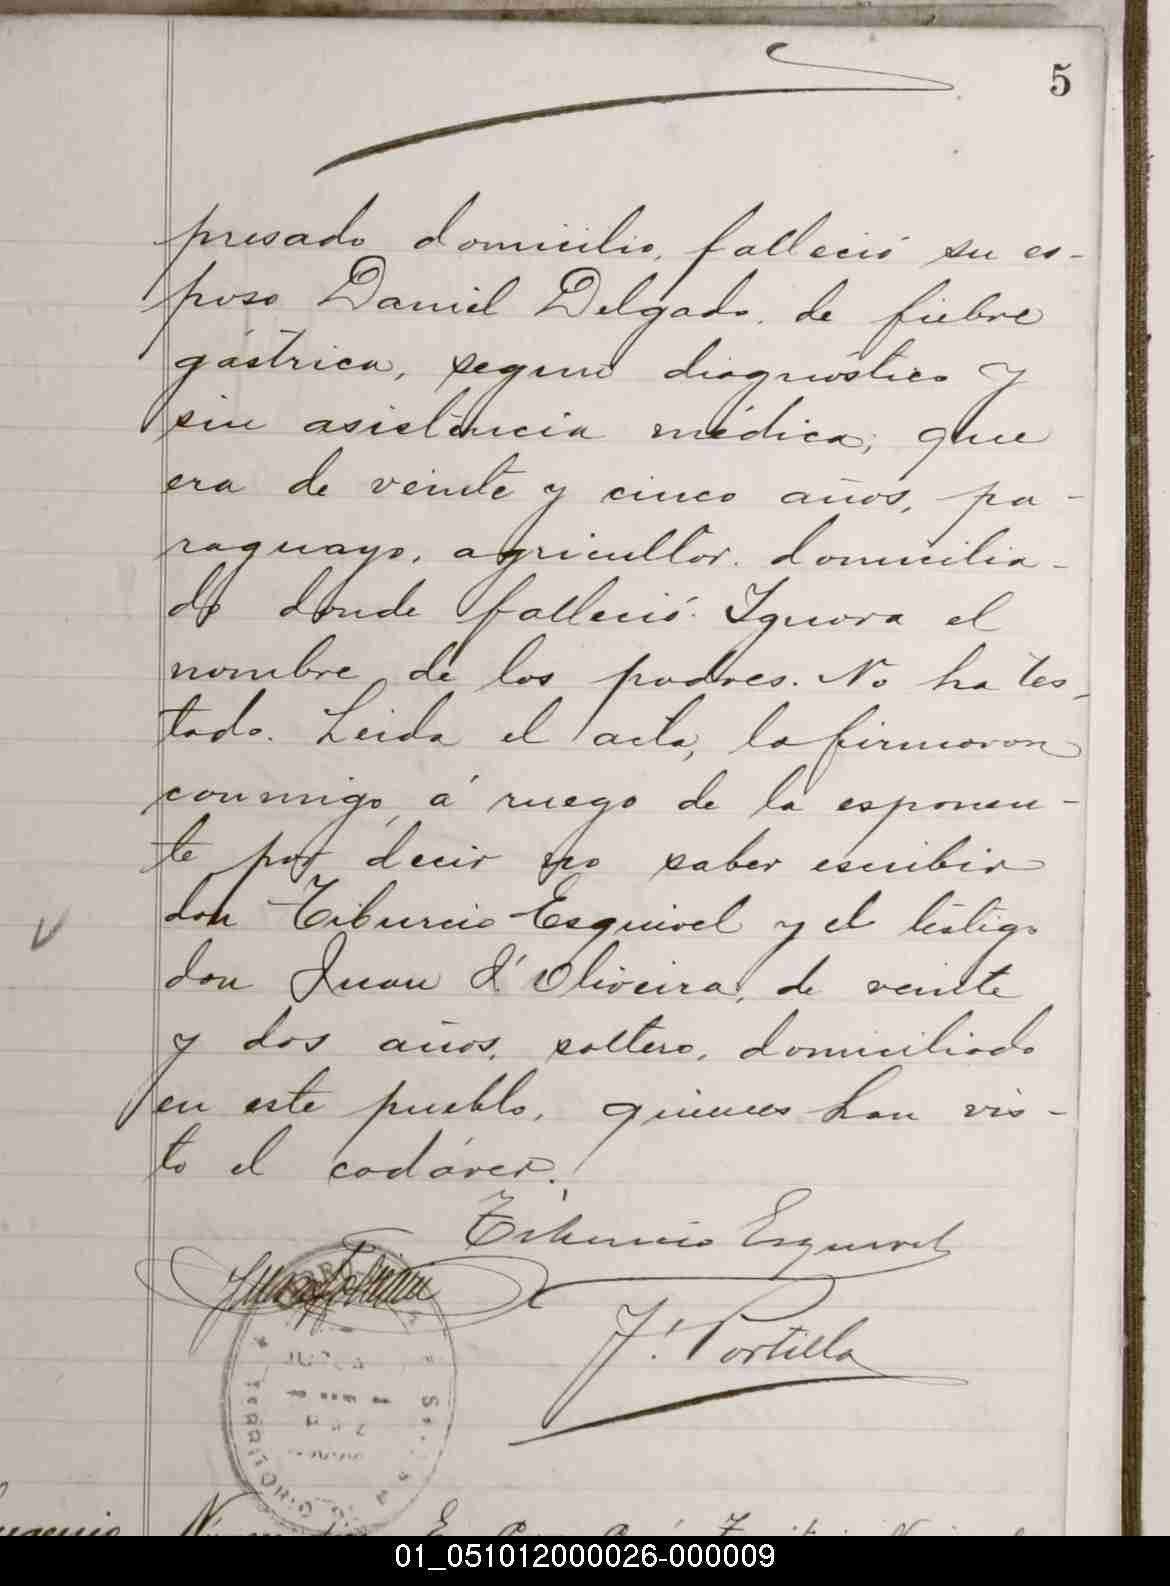 5
presado domicilio, falleció su es-
poso Daniel Delgado, de fiebre
gástrica, segun diagnóstico y
sin asistencia médica; que
era de veinte y cinco años, pa-
raguayo, agricultor, domicilia-
do donde falleció. Ignora el
nombre de los padres. No ha tes-
tado. Leida el acta, la firmaron
conmigo, á ruego de la esponen-
te por decir no saber escribir
don Tiburcio Esquivel y el testigo
don Juan d'Oliveira, de veinte
y dos años, soltero, domiciliado
en este pueblo, quienes han vis-
to el cadáver.
Tiburcio Esquivel
J. Portilla
TERRITORIO
01_051012000026-000009